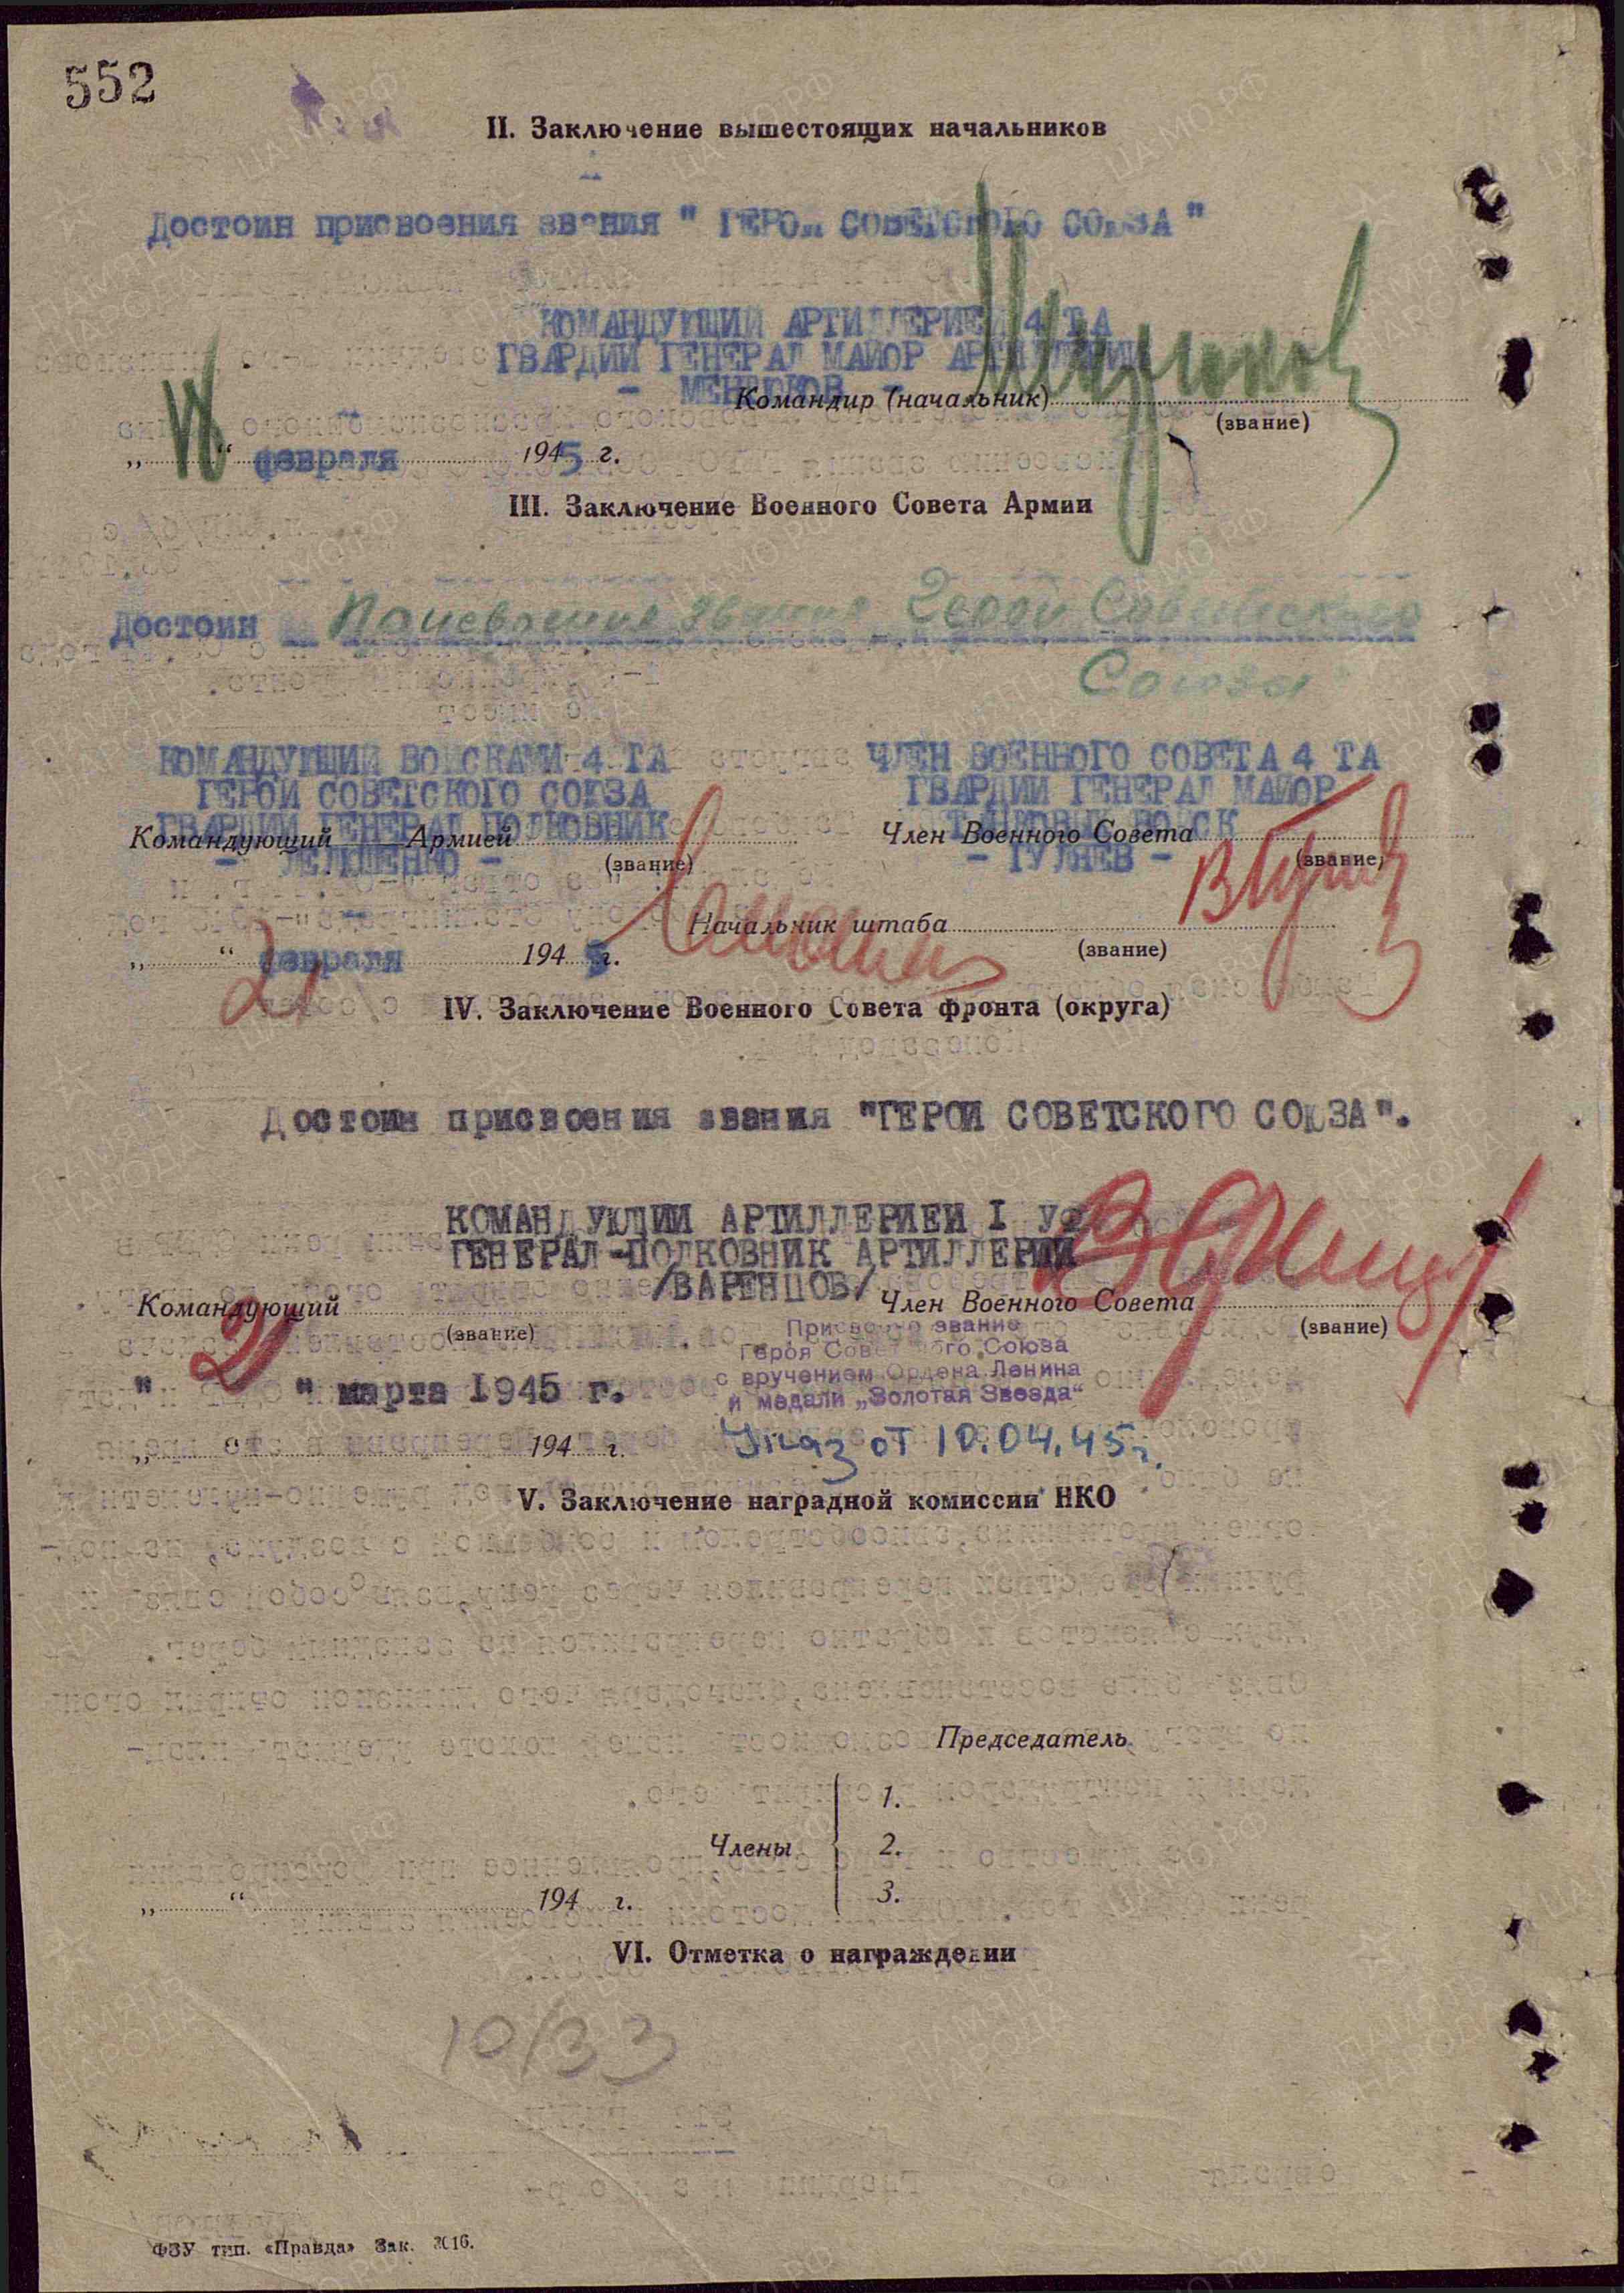 552
II. Заключение вышестоящих начальников
Достоин присвоения звания " ГЕРОЙ СОВЕТСКОГО СОЮЗА "
КОМАНДУЮЩИЙ АРТИЛЛЕРИЕЙ 4 ТА
ГВАРДИИ ГЕНЕРАЛ МАЙОР АРТИЛЛЕРИИ
- МЕНТЮКОВ -
Командир (начальник)
(звание)
„ 18 “ февраля 1945 г.
III. Заключение Военного Совета Армии
Достоин Присвоения звания Герой Советского
Союза
КОМАНДУЮЩИЙ ВОЙСКАМИ 4 ТА
ГЕРОЙ СОВЕТСКОГО СОЮЗА
ГВАРДИИ ГЕНЕРАЛ ПОЛКОВНИК
- ЛЕЛЮШЕНКО -
Командующий Армией
(звание)
ЧЛЕН ВОЕННОГО СОВЕТА 4 ТА
ГВАРДИИ ГЕНЕРАЛ МАЙОР
ТАНКОВЫХ ВОЙСК
- ГУЛЯЕВ -
Член Военного Совета
(звание)
Начальник штаба
(звание)
„ 21 “ февраля 1945 г.
IV. Заключение Военного Совета фронта (округа)
Достоин присвоения звания "ГЕРОЙ СОВЕТСКОГО СОЮЗА".
КОМАНДУЮЩИЙ АРТИЛЛЕРИЕЙ I УФ
ГЕНЕРАЛ-ПОЛКОВНИК АРТИЛЛЕРИИ
/ВАРЕНЦОВ/
Командующий
(звание)
Член Военного Совета
(звание)
" 21 " марта 1945 г.
Присвоено звание
Героя Советского Союза
с вручением Ордена Ленина
и медали „Золотая Звезда“
Указ от 10.04.45г.
„ “ 194 г.
V. Заключение наградной комиссии НКО
Председатель
Члены
1.
2.
3.
„ “ 194 г.
VI. Отметка о награждении
10/33
ФЗУ тип. «Правда» Зак. 3016.